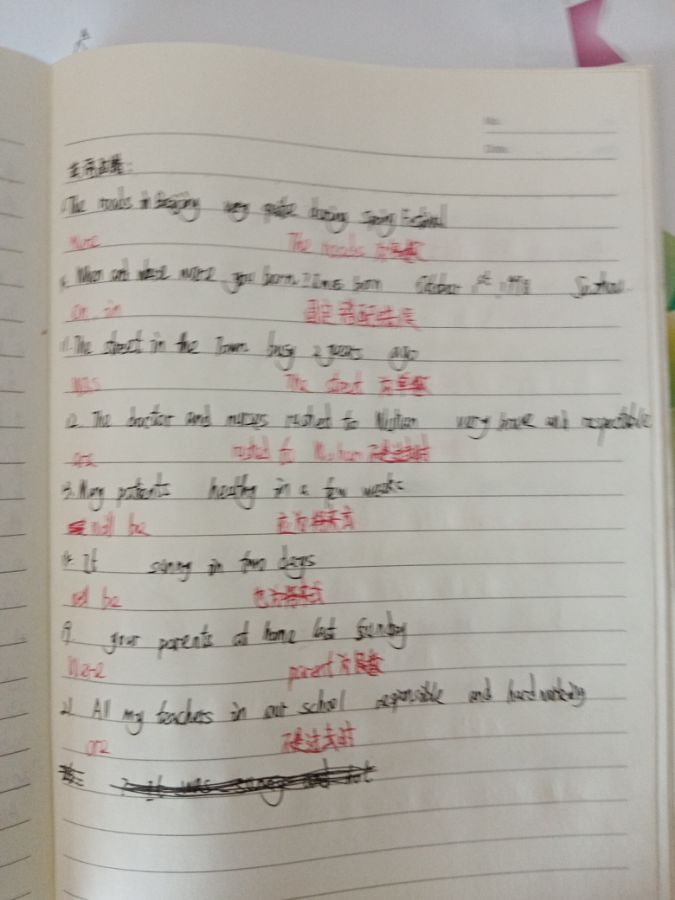 No:
Date:
1. The roads in Beijing very quite during Spring Festival
Were The roads 为复数
When and where were you born? I was born October 1st, 1998 Suzhou.
on in 固定搭配
11. The street in the Town busy 2 years ago
Was The street 为单数
12. The doctor and nurses rushed to Wuhan very brave and respectible
are rushed to Wuhan 不是过去时
3. Many patients healthy in a few weeks
will be 应为将来式
14. It sunny in two days
will be 也为将来式
9. your parents at home last Sunday
Were parent 为复数
21 All my teachers in our school responsible and hardworking
are 不是过去时